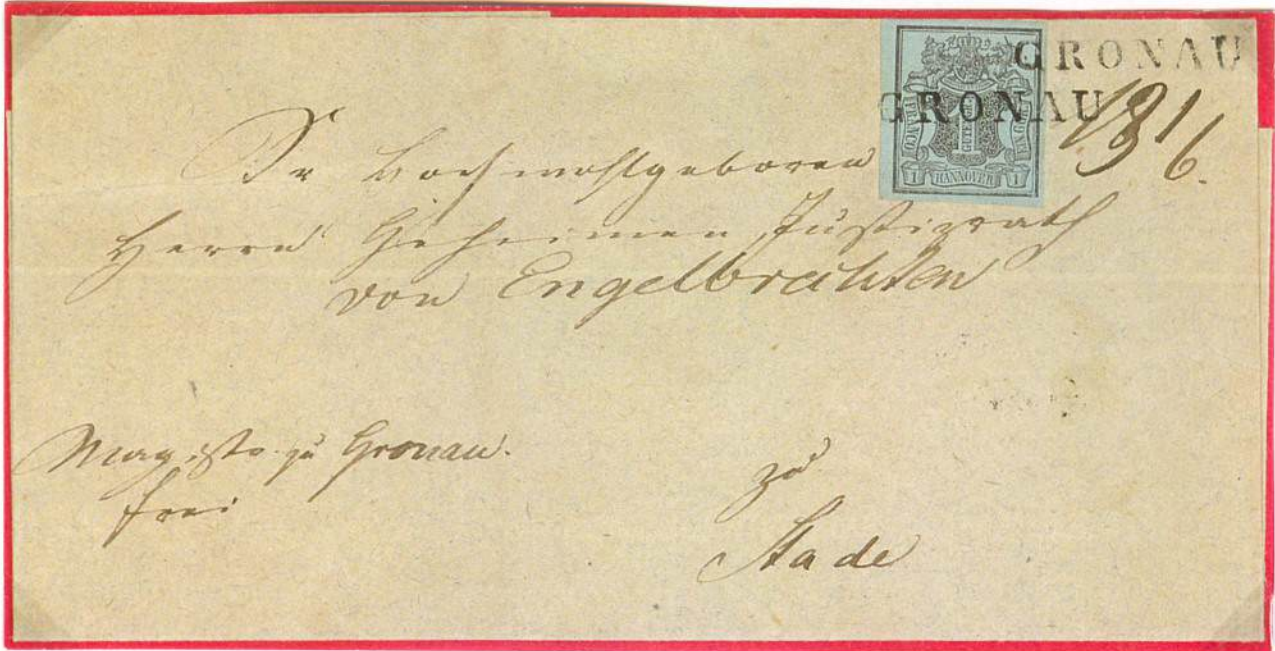 GRONAU
GRONAU
13/6.
FRANCO
1 GUTENGR.
1 HANNOVER 1
Sr Hochwohlgeboren
Herrn Geheimen Justizrath
von Engelbrechten
Magistr. zu Gronau.
frei
zu
Stade